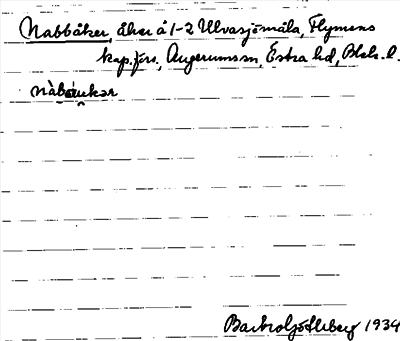 Nabbåker, åker å 1-2 Ulvasjömåla, Flymens
kap.förs., Augerums sn, Östra hd, Blek. l.
Götlberg 1934